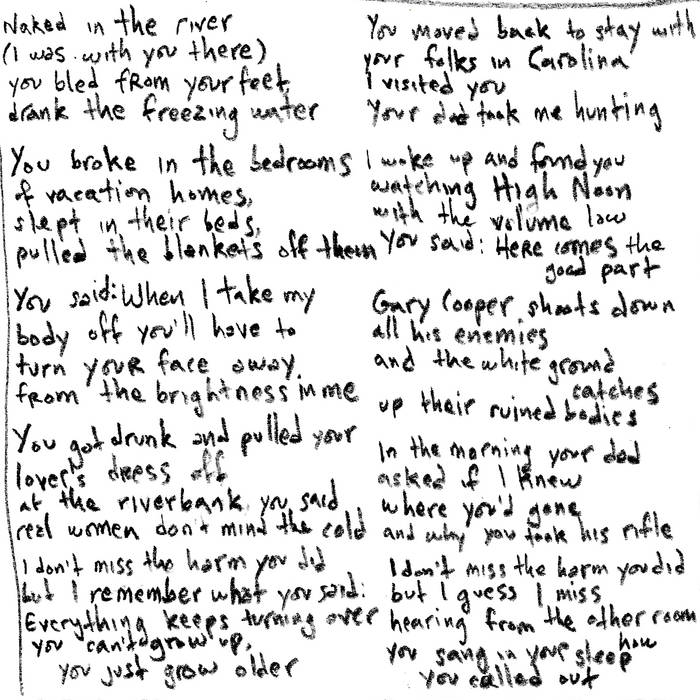 Naked in the river
(I was with you there)
you bled from your feet,
drank the freezing water
You broke in the bedrooms
of vacation homes,
slept in their beds,
pulled the blankets off them
You said: When I take my
body off you'll have to
turn your face away
from the brightness in me
You got drunk and pulled your
lover's dress off
at the riverbank, you said
real women don't mind the cold
I don't miss the harm you did
but I remember what you said:
Everything keeps turning over
you can't grow up,
you just grow older
You moved back to stay with
your folks in Carolina
I visited you
Your dad took me hunting
I woke up and found you
watching High Noon
with the volume low
You said: Here comes the
good part
Gary Cooper shoots down
all his enemies
and the white ground
catches
up their ruined bodies
In the morning your dad
asked if I knew
where you'd gone
and why you took his rifle
I don't miss the harm you did
but I guess I miss
hearing from the other room
how
you sang in your sleep
you called out